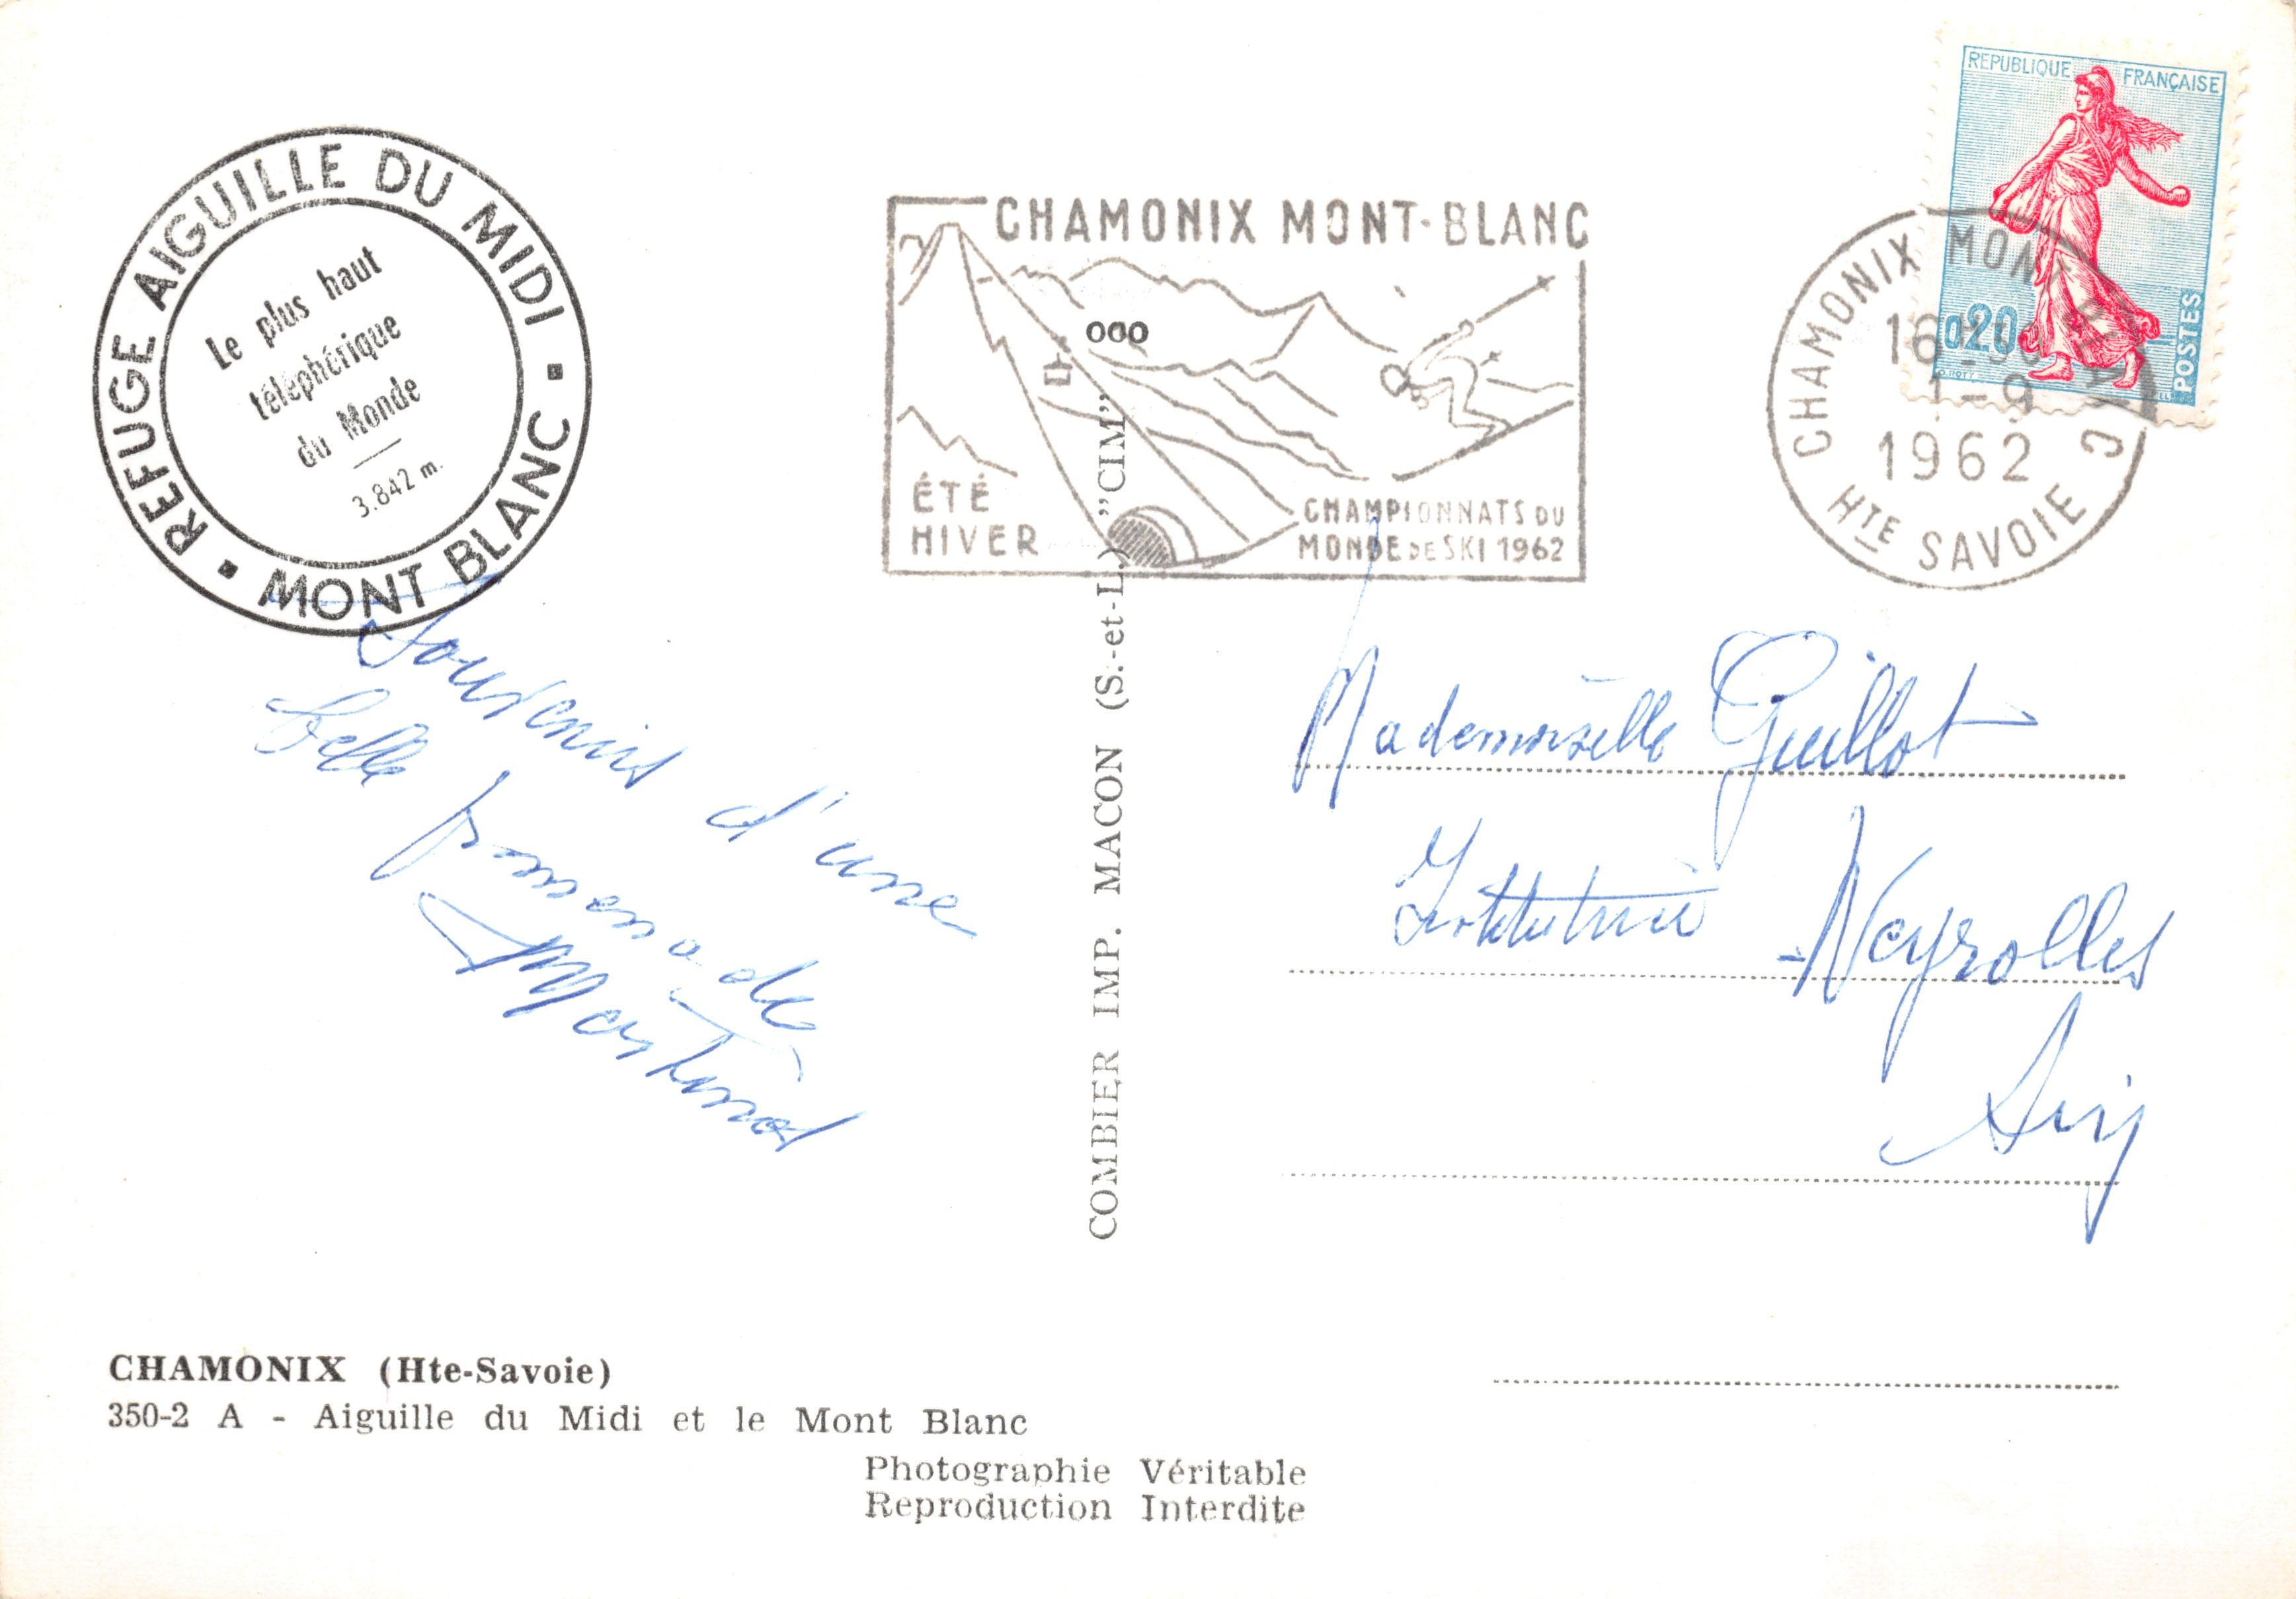 REFUGE AIGUILLE DU MIDI
MONT BLANC
Le plus haut
téléphérique
du Monde
3.842 m.
CHAMONIX MONT-BLANC
ÉTÉ
HIVER
CHAMPIONNATS DU
MONDE DE SKI 1962
REPUBLIQUE FRANÇAISE
0,20
POSTES
CHAMONIX MONT-BLANC
1-9
1962
HTE SAVOIE
Souvenirs d'une
belle promenade
Mademoiselle Guillot
Institutrice - Neyrolles
Ain
COMBIER IMP. MACON (S.-et-L.) "CIM"
000
CHAMONIX (Hte-Savoie)
350-2 A - Aiguille du Midi et le Mont Blanc
Photographie Véritable
Reproduction Interdite